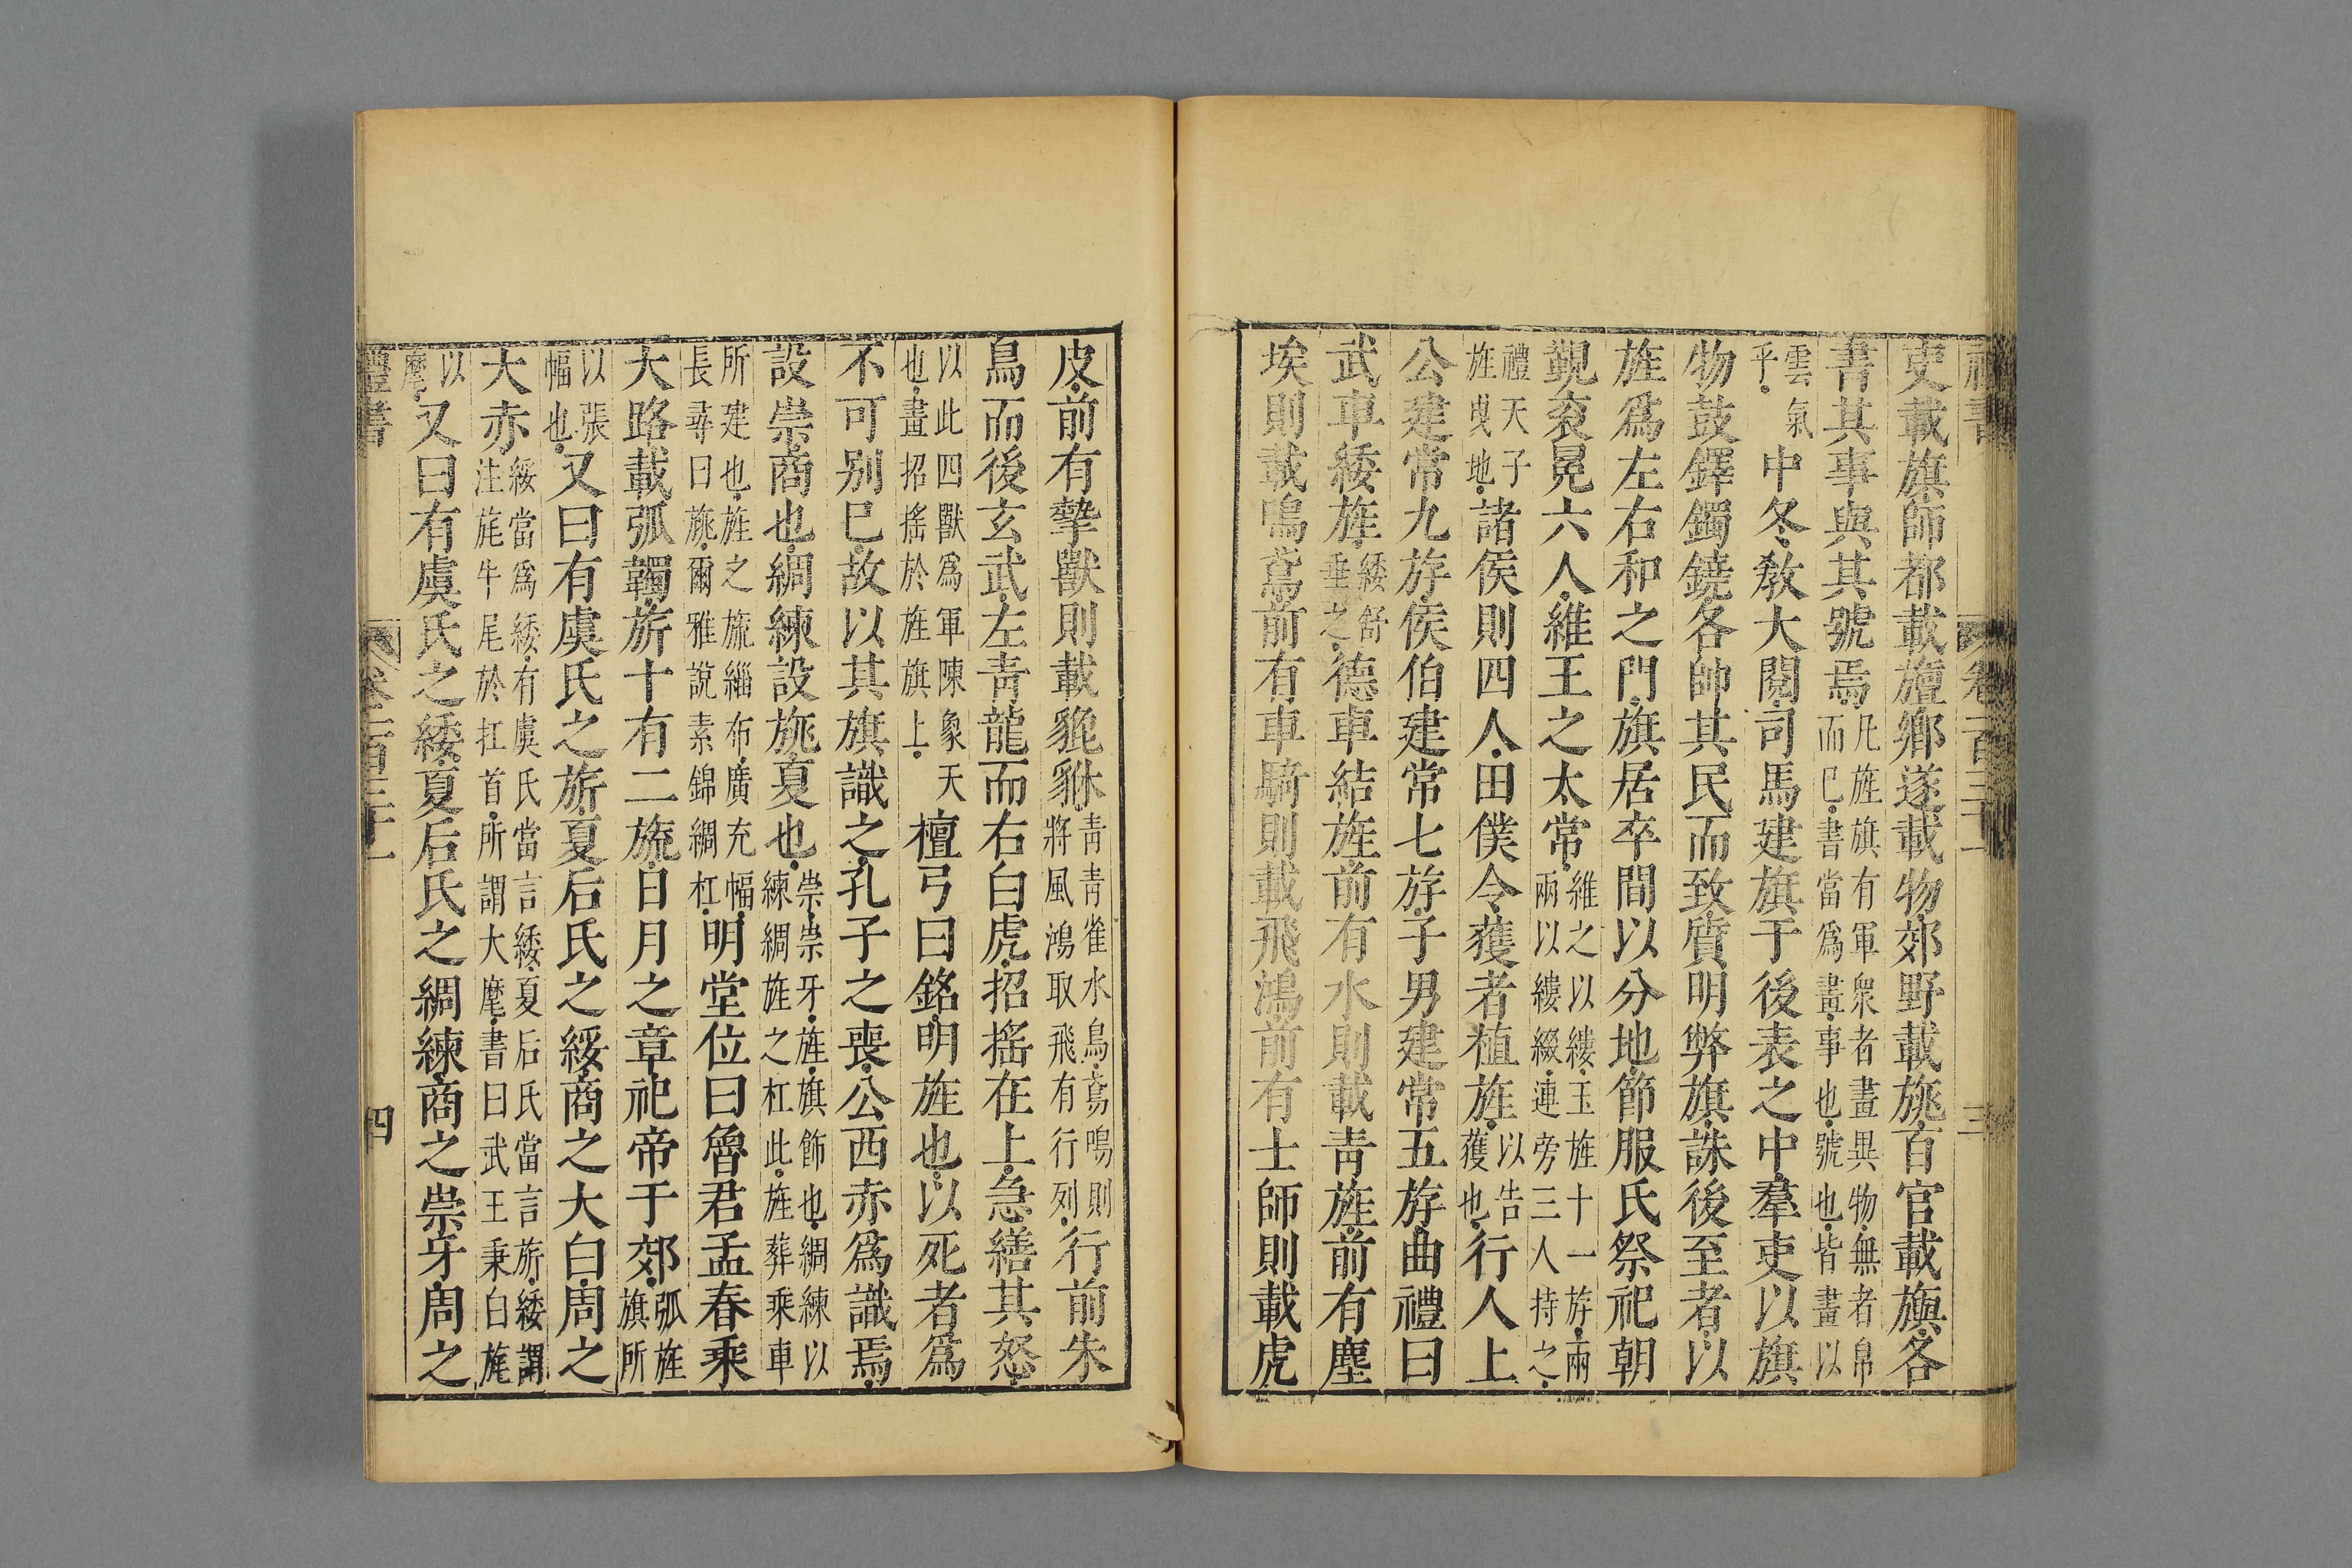 禮書 卷一百三十一 三
吏載旗師都載旜鄉遂載物郊野載旐百官載旟各
書其事與其號焉凡旌旗有軍衆者畫異物無者帛而已書當爲畫事也號也皆畫以
雲氣乎中冬敎大閱司馬建旗于後表之中羣吏以旗
物鼓鐸鐲鐃各帥其民而致質明弊旗誅後至者以
旌爲左右和之門旗居卒間以分地節服氏祭祀朝
覲衮冕六人維王之太常維之以縷玉旌十一斿兩兩以縷綴連旁三人持之
禮天子旌曳地諸侯則四人田僕令獲者植旌以告獲也行人上
公建常九斿侯伯建常七斿子男建常五斿曲禮曰
武車綏旌綏舒垂之德車結旌前有水則載靑旌前有塵
埃則載鳴鳶前有車騎則載飛鴻前有士師則載虎
皮前有摯獸則載貔貅靑靑雀水鳥鳶鳴則將風鴻取飛有行列行前朱
鳥而後玄武左靑龍而右白虎招搖在上急繕其怒
以此四獸爲軍陳象天也畫招搖於旌旗上檀弓曰銘明旌也以死者爲
不可别已故以其旗識之孔子之喪公西赤爲識焉
設崇商也綢練設旐夏也崇崇牙旌旗飾也綢練以練綢旌之杠此旌葬乘車
所建也旌之旒緇布廣充幅長尋曰旐爾雅說素錦綢杠明堂位曰魯君孟春乘
大路載弧韣旂十有二旒日月之章祀帝于郊弧旌旗所
以張幅也又曰有虞氏之旂夏后氏之綏商之大白周之
大赤綏當爲緌有虞氏當言緌夏后氏當言旂緌謂注旄牛尾於杠首所謂大麾書曰武王秉白旄
以麾又曰有虞氏之緌夏后氏之綢練商之崇牙周之
禮書 卷一百三十一 四